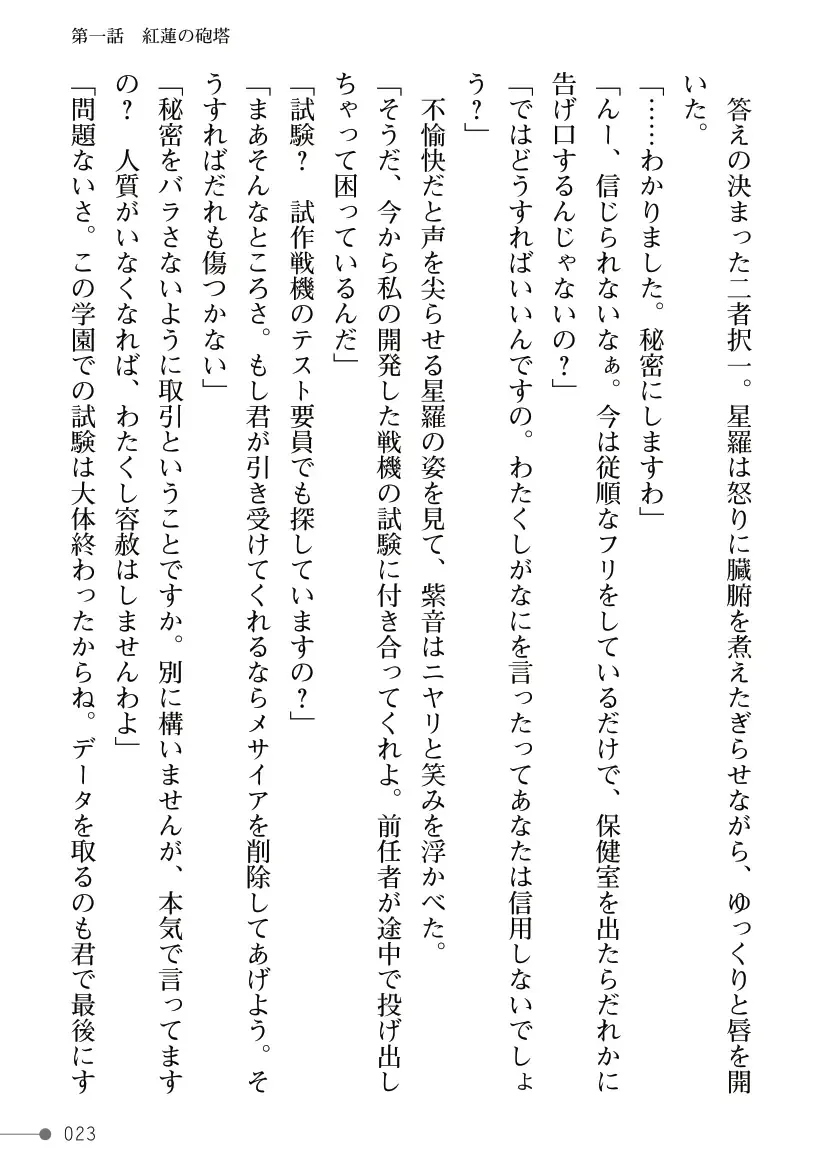 第一話　紅蓮の砲塔
　答えの決まった二者択一。星羅は怒りに臓腑を煮えたぎらせながら、ゆっくりと唇を開
いた。
「……わかりました。秘密にしますわ」
「んー、信じられないなぁ。今は従順なフリをしているだけで、保健室を出たらだれかに
告げ口するんじゃないの？」
「ではどうすればいいんですの。わたくしがなにを言ったってあなたは信用しないでしょ
う？」
　不愉快だと声を尖らせる星羅の姿を見て、紫音はニヤリと笑みを浮かべた。
「そうだ、今から私の開発した戦機の試験に付き合ってくれよ。前任者が途中で投げ出し
ちゃって困っているんだ」
「試験？　試作戦機のテスト要員でも探していますの？」
「まあそんなところさ。もし君が引き受けてくれるならメサイアを削除してあげよう。そ
うすればだれも傷つかない」
「秘密をバラさないように取引ということですか。別に構いませんが、本気で言ってます
の？　人質がいなくなれば、わたくし容赦はしませんわよ」
「問題ないさ。この学園での試験は大体終わったからね。データを取るのも君で最後にす
023